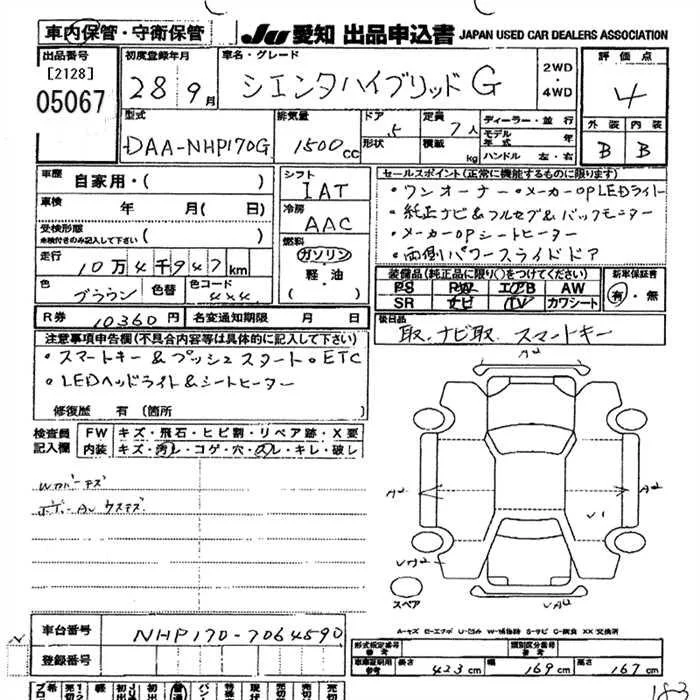 車内保管・守衛保管
JU 愛知 出品申込書 JAPAN USED CAR DEALERS ASSOCIATION
出品番号
[2128]
05067
初度登録年月
28 9月
車名・グレード
シエンタハイブリッドG
2WD
・
4WD
評価点
4
外装 内装
B B
型式
DAA-NHP170G
排気量
1500cc
ドア 5
形状
定員 7人
積載 kg
ディーラー・並行
モデル年式 年
ハンドル 左・右
車歴 自家用・( )
車検 年 月( 日)
受検形態
未検付きのみ記入して下さい ( )
走行 10万4千947km
色 ブラウン 色替 色コード 4X4
シフト
IAT
冷房
AAC
燃料
ガソリン
軽・油
・( )
セールスポイント(正常に機能するものに限ります)
・ワンオーナー・メーカーOPLEDライト
・純正ナビ&フルセグ&バックモニター
・メーカーOPシートヒーター
・両側パワースライドドア
装備品(純正品に限り○をつけてください)
PS PW エアB AW
SR ナビ TV カワシート
新車保証書
有・無
R券 10360円 名変通知期限 月 日
後日品
取、ナビ取、スマートキー
注意事項申告欄(不具合内容等は具体的に記入して下さい)
・スマートキー&プッシュスタート・ETC
・LEDヘッドライト&シートヒーター
修復歴 有(箇所 )
検査員記入欄
FW キズ・飛石・ヒビ割・リペア跡・X要
内装 キズ・汚レ・コゲ・穴・スレ・キレ・破レ
A2
A2
A2
スペア
A-キズ E-エクボ U-凹み W-補修跡 S-サビ C-腐食 XX 交換済
車台番号 NHP170-7064590
登録番号
形式指定番号
参考
類別区分番号
参考
車庫証明用
参考
長さ 423cm 幅 169cm 高さ 167cm